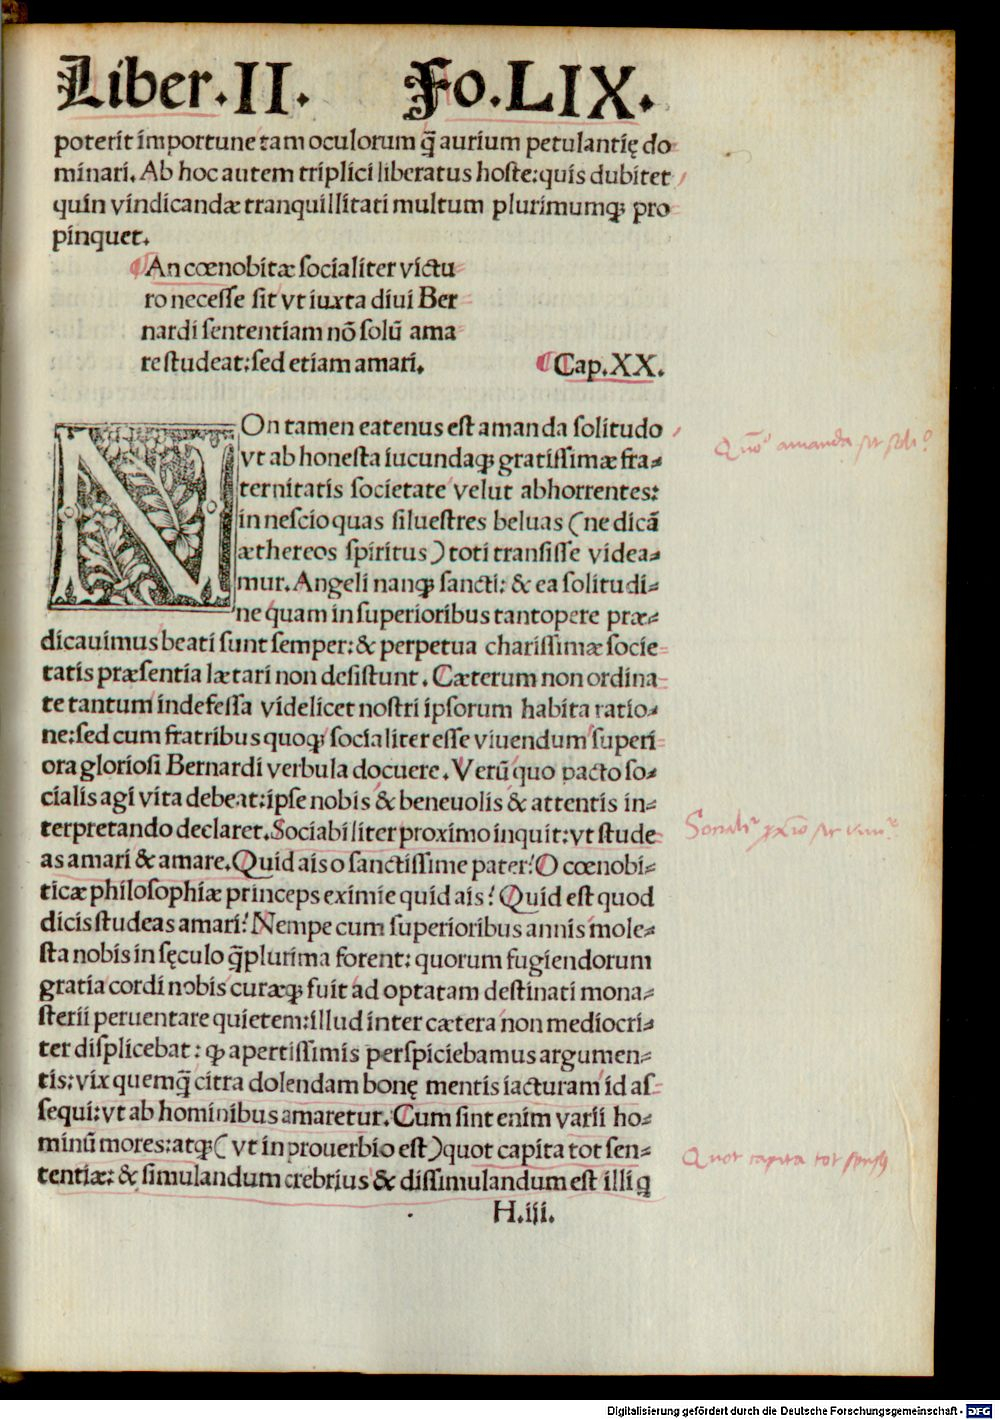 Liber.II. Fo.LIX.
poterit importune tam oculorum q̃ aurium petulantię do
minari. Ab hoc autem triplici liberatus hoste: quis dubitet
quin vindicandæ tranquillitati multum plurimumqꝫ pro
pinquet.
¶An cœnobitæ socialiter victu
ro necesse sit vt iuxta diui Ber
nardi sententiam nõ solũ ama
re studeat: sed etiam amari. ¶Cap.XX.
NOn tamen eatenus est amanda solitudo
vt ab honesta iucundaqꝫ gratissimæ fra⸗
ternitatis societate velut abhorrentes:
in nescio quas siluestres beluas (ne dicã
æthereos spiritus) toti transisse videa⸗
mur. Angeli nanqꝫ sancti: & ea solitudi⸗
ne quam in superioribus tantopere præ⸗
dicauimus beati sunt semper: & perpetua charissimæ socie
tatis præsentia lætari non desistunt. Cæterum non ordina
te tantum indefessa videlicet nostri ipsorum habita ratio⸗
ne: sed cum fratribus quoqꝫ socialiter esse viuendum superi
ora gloriosi Bernardi verbula docuere. Verũ quo pacto so⸗
cialis agi vita debeat: ipse nobis & beneuolis & attentis in⸗
terpretando declaret. Sociabiliter proximo inquit: vt stude
as amari & amare. Quid ais o sanctissime pater? O cœnobi⸗
ticæ philosophiæ princeps eximie quid ais? Quid est quod
dicis studeas amari? Nempe cum superioribus annis mole⸗
sta nobis in sęculo q̃plurima forent: quorum fugiendorum
gratia cordi nobis curæqꝫ fuit ad optatam destinati mona⸗
sterii peruentare quietem: illud inter cætera non mediocri⸗
ter displicebat: ꝙ apertissimis perspiciebamus argumen⸗
tis: vix quemq̃ citra dolendam bonę mentis iacturam id as⸗
sequi: vt ab hominibus amaretur. Cum sint enim varii ho⸗
minũ mores: atqꝫ (vt in prouerbio est) quot capita tot sen⸗
tentiæ: & simulandum crebrius & dissimulandum est illi q
H.iii.
amanda
Quot capita tot
Digitalisierung gefördert durch die Deutsche Forschungsgemeinschaft - DFG